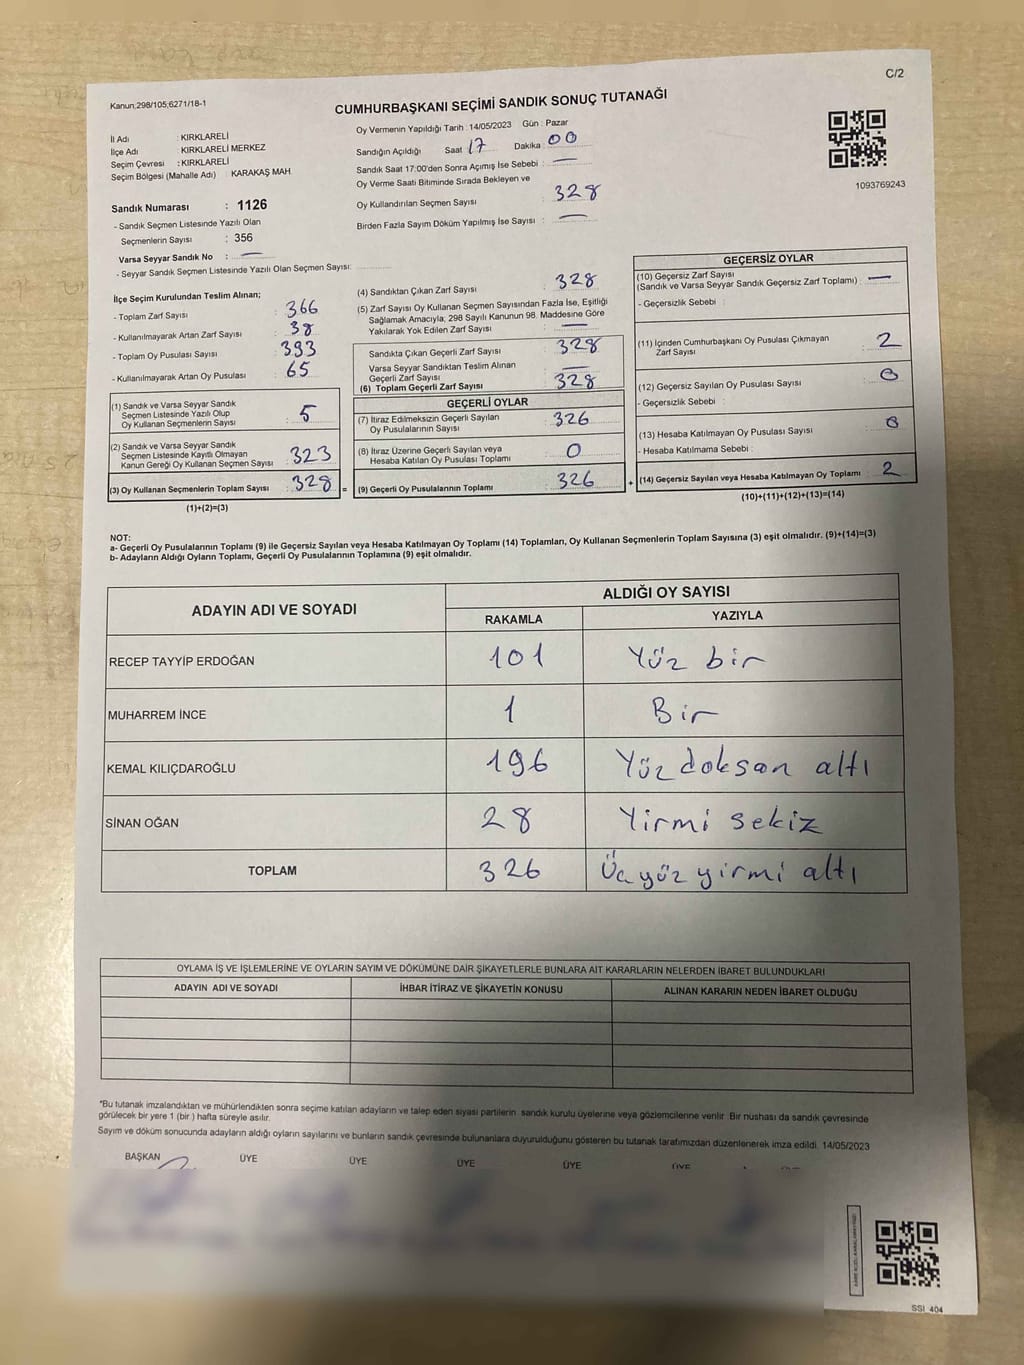 C/2
Kanun:298/105;6271/18-1
CUMHURBAŞKANI SEÇİMİ SANDIK SONUÇ TUTANAĞI
İl Adı : KIRKLARELİ
İlçe Adı : KIRKLARELİ MERKEZ
Seçim Çevresi : KIRKLARELİ
Seçim Bölgesi (Mahalle Adı) : KARAKAŞ MAH.
Sandık Numarası : 1126
- Sandık Seçmen Listesinde Yazılı Olan
Seçmenlerin Sayısı : 356
Varsa Seyyar Sandık No : —
- Seyyar Sandık Seçmen Listesinde Yazılı Olan Seçmen Sayısı:
Oy Vermenin Yapıldığı Tarih : 14/05/2023 Gün : Pazar
Sandığın Açıldığı Saat 17 Dakika : 00
Sandık Saat 17:00'den Sonra Açımış İse Sebebi : —
Oy Verme Saati Bitiminde Sırada Bekleyen ve
Oy Kullandırılan Seçmen Sayısı : 328
Birden Fazla Sayım Döküm Yapılmış İse Sayısı : —
1093769243
İlçe Seçim Kurulundan Teslim Alınan;
- Toplam Zarf Sayısı : 366
- Kullanılmayarak Artan Zarf Sayısı : 38
- Toplam Oy Pusulası Sayısı : 393
- Kullanılmayarak Artan Oy Pusulası : 65
(1) Sandık ve Varsa Seyyar Sandık
Seçmen Listesinde Yazılı Olup
Oy Kullanan Seçmenlerin Sayısı : 5
(2) Sandık ve Varsa Seyyar Sandık
Seçmen Listesinde Kayıtlı Olmayan
Kanun Gereği Oy Kullanan Seçmen Sayısı : 323
(3) Oy Kullanan Seçmenlerin Toplam Sayısı : 328 =
(1)+(2)=(3)
(4) Sandıktan Çıkan Zarf Sayısı : 328
(5) Zarf Sayısı Oy Kullanan Seçmen Sayısından Fazla İse, Eşitliği
Sağlamak Amacıyla; 298 Sayılı Kanunun 98. Maddesine Göre
Yakılarak Yok Edilen Zarf Sayısı : —
Sandıkta Çıkan Geçerli Zarf Sayısı : 328
Varsa Seyyar Sandıktan Teslim Alınan
Geçerli Zarf Sayısı : —
(6) Toplam Geçerli Zarf Sayısı : 328
GEÇERLİ OYLAR
(7) İtiraz Edilmeksizin Geçerli Sayılan
Oy Pusulalarının Sayısı : 326
(8) İtiraz Üzerine Geçerli Sayılan veya
Hesaba Katılan Oy Pusulası Toplamı : 0
(9) Geçerli Oy Pusulalarının Toplamı : 326 +
GEÇERSİZ OYLAR
(10) Geçersiz Zarf Sayısı
(Sandık ve Varsa Seyyar Sandık Geçersiz Zarf Toplamı) : —
- Geçersizlik Sebebi :
(11) İçinden Cumhurbaşkanı Oy Pusulası Çıkmayan
Zarf Sayısı : 2
(12) Geçersiz Sayılan Oy Pusulası Sayısı : 0
- Geçersizlik Sebebi :
(13) Hesaba Katılmayan Oy Pusulası Sayısı : 0
- Hesaba Katılmama Sebebi :
(14) Geçersiz Sayılan veya Hesaba Katılmayan Oy Toplamı : 2
(10)+(11)+(12)+(13)=(14)
NOT:
a- Geçerli Oy Pusulalarının Toplamı (9) ile Geçersiz Sayılan veya Hesaba Katılmayan Oy Toplamı (14) Toplamları, Oy Kullanan Seçmenlerin Toplam Sayısına (3) eşit olmalıdır. (9)+(14)=(3)
b- Adayların Aldığı Oyların Toplamı, Geçerli Oy Pusulalarının Toplamına (9) eşit olmalıdır.
ADAYIN ADI VE SOYADI ALDIĞI OY SAYISI
RAKAMLA YAZIYLA
RECEP TAYYİP ERDOĞAN 101 Yüz bir
MUHARREM İNCE 1 Bir
KEMAL KILIÇDAROĞLU 196 Yüzdoksan altı
SİNAN OĞAN 28 Yirmi sekiz
TOPLAM 326 Üçyüz yirmi altı
OYLAMA İŞ VE İŞLEMLERİNE VE OYLARIN SAYIM VE DÖKÜMÜNE DAİR ŞİKAYETLERLE BUNLARA AİT KARARLARIN NELERDEN İBARET BULUNDUKLARI
ADAYIN ADI VE SOYADI İHBAR İTİRAZ VE ŞİKAYETİN KONUSU ALINAN KARARIN NEDEN İBARET OLDUĞU
*Bu tutanak imzalandıktan ve mühürlendikten sonra seçime katılan adayların ve talep eden siyasi partilerin sandık kurulu üyelerine veya gözlemcilerine verilir. Bir nüshası da sandık çevresinde
görülecek bir yere 1 (bir ) hafta süreyle asılır.
Sayım ve döküm sonucunda adayların aldığı oyların sayılarını ve bunların sandık çevresinde bulunanlara duyurulduğunu gösteren bu tutanak tarafımızdan düzenlenerek imza edildi. 14/05/2023
BAŞKAN ÜYE ÜYE ÜYE ÜYE ÜYE
SSI_404